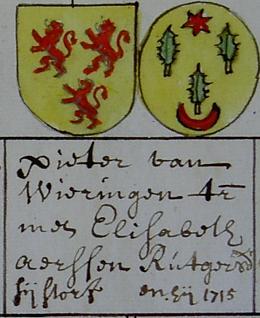 Pieter van
Wieringen tr̄
met Elisabeth
aerssen Rutgersd
sij storf en hij 1715